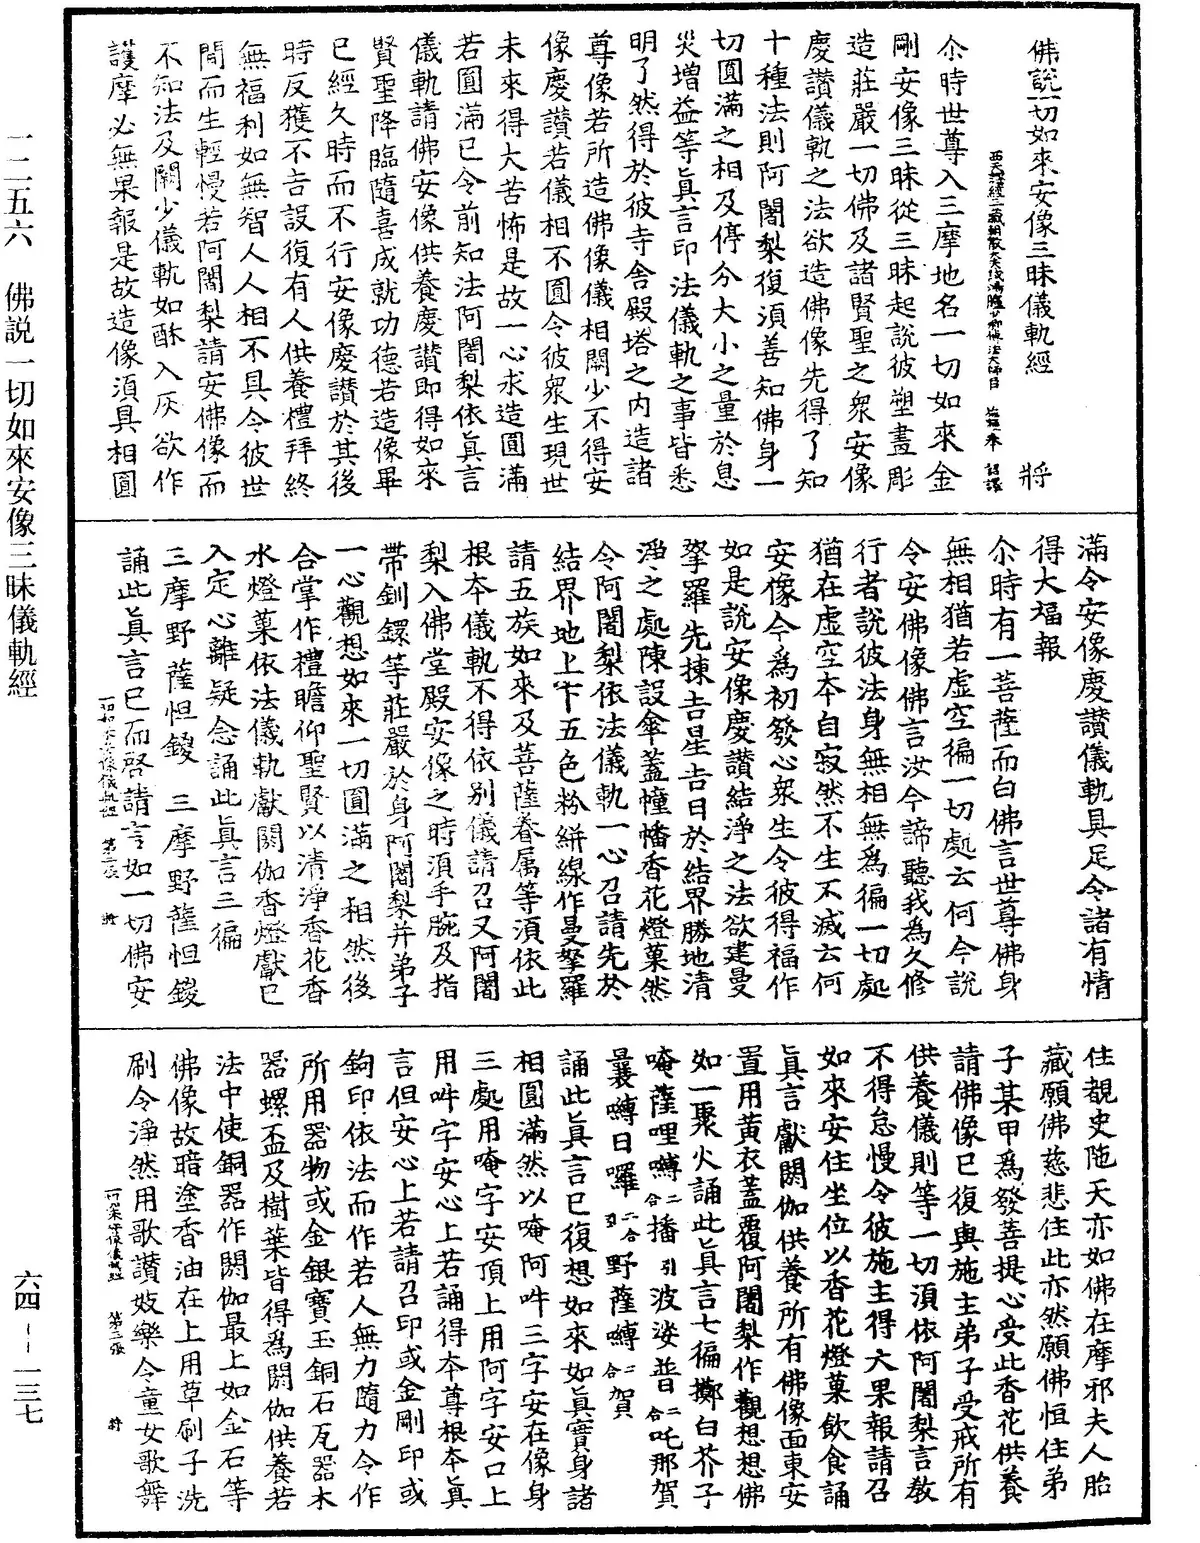 佛說一切如來安像三昧儀軌經 將
西天譯經三藏朝散大夫試鴻臚少卿傳法大師臣 施護 奉 詔譯
尒時世尊入三摩地名一切如來金
剛安像三昧從三昧起說彼塑畫彫
造莊嚴一切佛及諸賢聖之衆安像
慶讚儀軌之法欲造佛像先得了知
十種法則阿闍梨復須善知佛身一
切圓滿之相及停分大小之量於息
災增益等真言印法儀軌之事皆悉
明了然得於彼寺舍殿塔之內造諸
尊像若所造佛像儀相闕少不得安
像慶讚若儀相不圓令彼衆生現世
未來得大苦怖是故一心求造圓滿
若圓滿已令前知法阿闍梨依真言
儀軌請佛安像供養慶讚即得如來
賢聖降臨隨喜成就功德若造像畢
已經久時而不行安像慶讚於其後
時反獲不吉設復有人供養禮拜終
無福利如無智人人相不具令彼世
間而生輕慢若阿闍梨請安佛像而
不知法及闕少儀軌如酥入灰欲作
護摩必無果報是故造像須具相圓
滿令安像慶讚儀軌具足令諸有情
得大福報
尒時有一菩薩而白佛言世尊佛身
無相猶若虛空徧一切處云何今說
令安佛像佛言汝今諦聽我為久修
行者說彼法身無相無為徧一切處
猶在虛空本自寂然不生不滅云何
安像今為初發心衆生令彼得福作
如是說安像慶讚結淨之法欲建曼
拏羅先揀吉星吉日於結界勝地清
淨之處陳設傘蓋幢幡香花燈菓然
令阿闍梨依法儀軌一心召請先於
結界地上下五色粉絣線作曼拏羅
請五族如來及菩薩眷属等須依此
根本儀軌不得依別儀請召又阿闍
梨入佛堂殿安像之時須手腕及指
帶釧鐶等莊嚴於身阿闍梨并弟子
一心觀想如來一切圓滿之相然後
合掌作禮瞻仰聖賢以清淨香花香
水燈菓依法儀軌獻閼伽香燈獻已
入定心離疑念誦此真言三徧
三摩野薩怛鑁 三摩野薩怛鑁
誦此真言已而啓請言如一切佛安
一切如來安像儀軌經 第二張 將
住覩史陁天亦如佛在摩邪夫人胎
藏願佛慈悲住此亦然願佛恒住弟
子某甲為發菩提心受此香花供養
請佛像已復與施主弟子受戒所有
供養儀則等一切須依阿闍梨言教
不得怠慢令彼施主得大果報請召
如來安住坐位以香花燈菓飲食誦
真言獻閼伽供養所有佛像面東安
置用黃衣蓋覆阿闍梨作觀想想佛
如一聚火誦此真言七徧擲白芥子
唵薩哩嚩二合播引波娑普二合吒那賀
曩嚩日囉引二合野薩嚩二合賀
誦此真言已復想如來如真實身諸
相圓滿然以唵阿吽三字安在像身
三處用唵字安頂上用阿字安口上
用吽字安心上若誦得本尊根本真
言但安心上若請召印或金剛印或
鉤印依法而作若人無力隨力令作
所用器物或金銀寶玉銅石瓦器木
器螺盃及樹葉皆得為閼伽供養若
法中使銅器作閼伽最上如金石等
佛像故暗塗香油在上用草刷子洗
刷令淨然用歌讚妓樂令童女歌舞
一切如來安像儀軌經 第三張 將
一二五六 佛説一切如來安像三昧儀軌經
六四-一三七